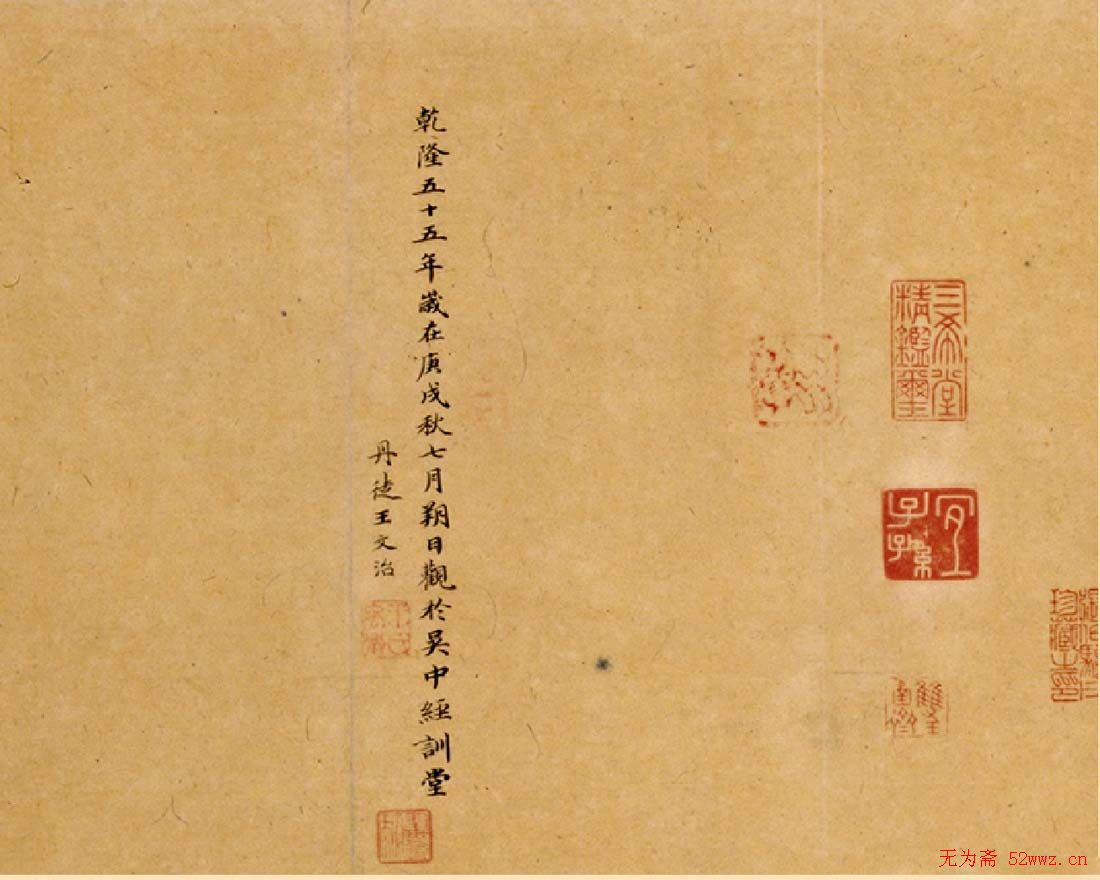 乾隆五十五年歲在庚戌秋七月朔日觀於吳中經訓堂
丹徒王文治
三希堂精鑑璽
宜子孫
无为斋 52wwz.cn